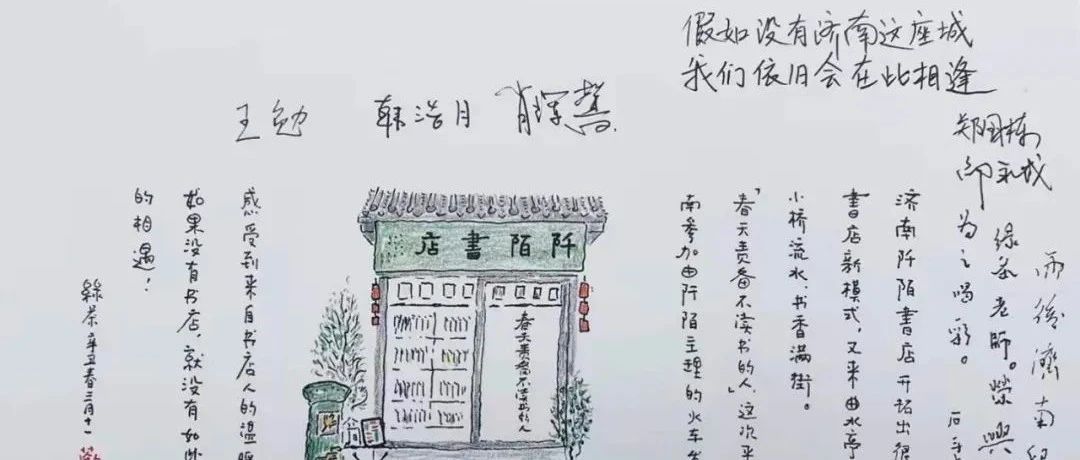 假如没有济南这座城
我们依旧会在此相逢
郑国栋
王勉
韩浩月
雨後濟南
绿茶老師。榮興
为之喝彩。
济南阡陌書店开拓出很
書店新模式，又来曲水亭
小桥流水、书香满街。
「春天责备不读书的人」这次来
南参加由阡陌主理的火车
阡陌書店
春天责备不读书的人
感受到来自书店人的温暖
如果没有书店，就没有如此
的相遇！
綠茶辛丑春三月十一